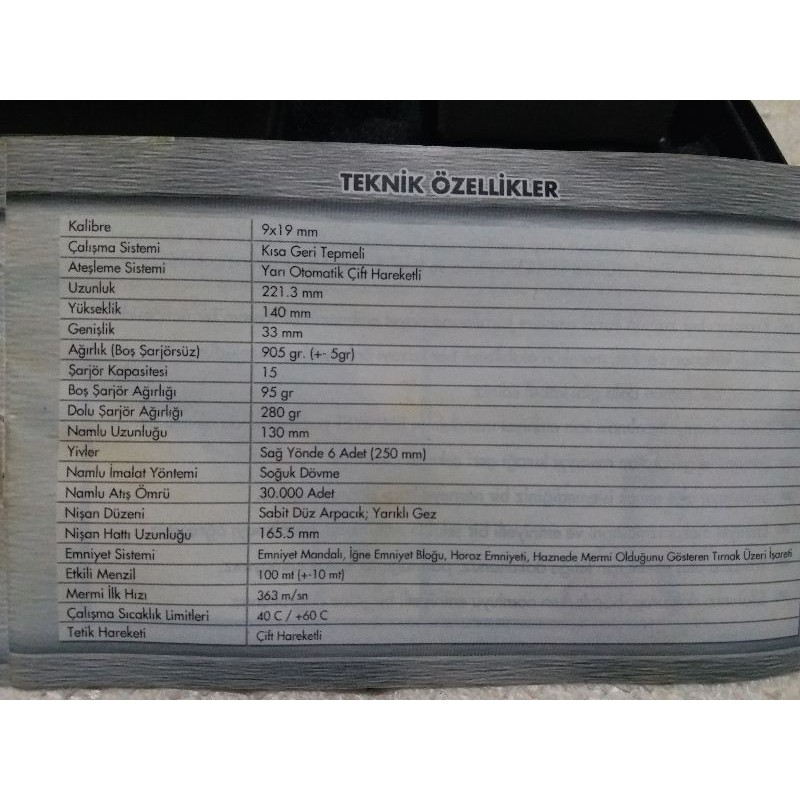 TEKNİK ÖZELLİKLER
Kalibre 9x19 mm
Çalışma Sistemi Kısa Geri Tepmeli
Ateşleme Sistemi Yarı Otomatik Çift Hareketli
Uzunluk 221.3 mm
Yükseklik 140 mm
Genişlik 33 mm
Ağırlık (Boş Şarjörsüz) 905 gr. (+- 5gr)
Şarjör Kapasitesi 15
Boş Şarjör Ağırlığı 95 gr
Dolu Şarjör Ağırlığı 280 gr
Namlu Uzunluğu 130 mm
Yivler Sağ Yönde 6 Adet (250 mm)
Namlu İmalat Yöntemi Soğuk Dövme
Namlu Atış Ömrü 30.000 Adet
Nişan Düzeni Sabit Düz Arpacık; Yarıklı Gez
Nişan Hattı Uzunluğu 165.5 mm
Emniyet Sistemi Emniyet Mandalı, İğne Emniyet Bloğu, Horoz Emniyeti, Haznede Mermi Olduğunu Gösteren Tırnak Üzeri İşareti
Etkili Menzil 100 mt (+-10 mt)
Mermi İlk Hızı 363 m/sn
Çalışma Sıcaklık Limitleri 40 C / +60 C
Tetik Hareketi Çift Hareketli